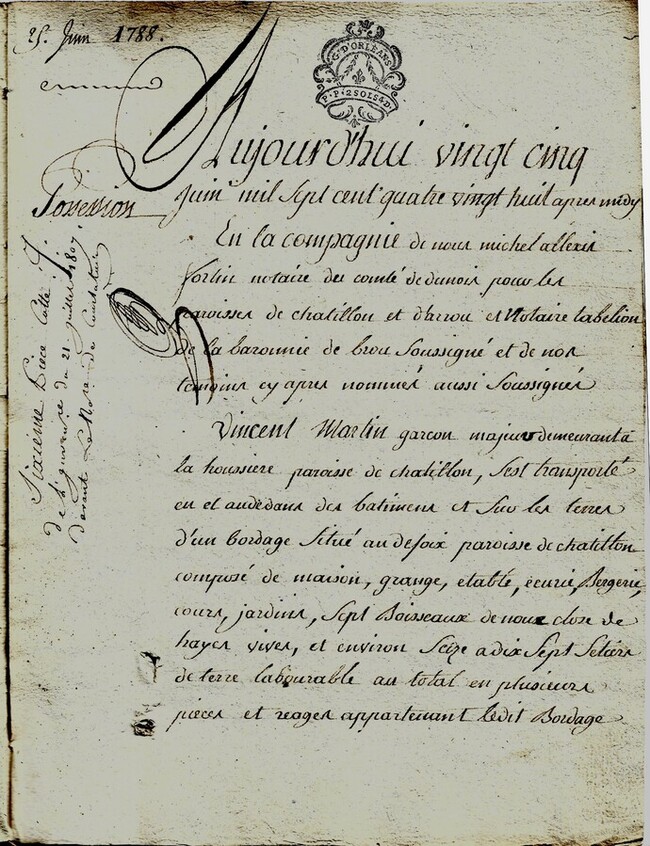 25. Juin 1788.
G. D'ORLEANS
P. P. 2 SOLS 4 D.
Aujourd'hui vingt cinq
Juin mil sept cent quatre vingt huit apres midy
Possession
En la compagnie de nous michel allexis
fortin notaire du comté de dunois pour les
paroisses de chatillon et d'arrou et Notaire tabelion
de la baronnie de brou soussigné et de nos
temoins cy apres nommés aussi soussignés
Vincent Martin garçon majeur demeurant à
la houssiere paroisse de chatillon, s'est transporté
en et audedans des batimens et sur les terres
d'un bordage situé au defoix paroisse de chatillon
composé de maison, grange, etable, ecurie, Bergerie,
cours, jardins, sept Boisseaux de close de
hayes vives, et environ seize a dix sept setiers
de terre labourable au total en plusieurs
pieces et reages appartenant ledit Bordage
Sixieme Piece Cottée J.
de l'inventaire du 21 juillet 1807
devant Le Notre de Courtalain